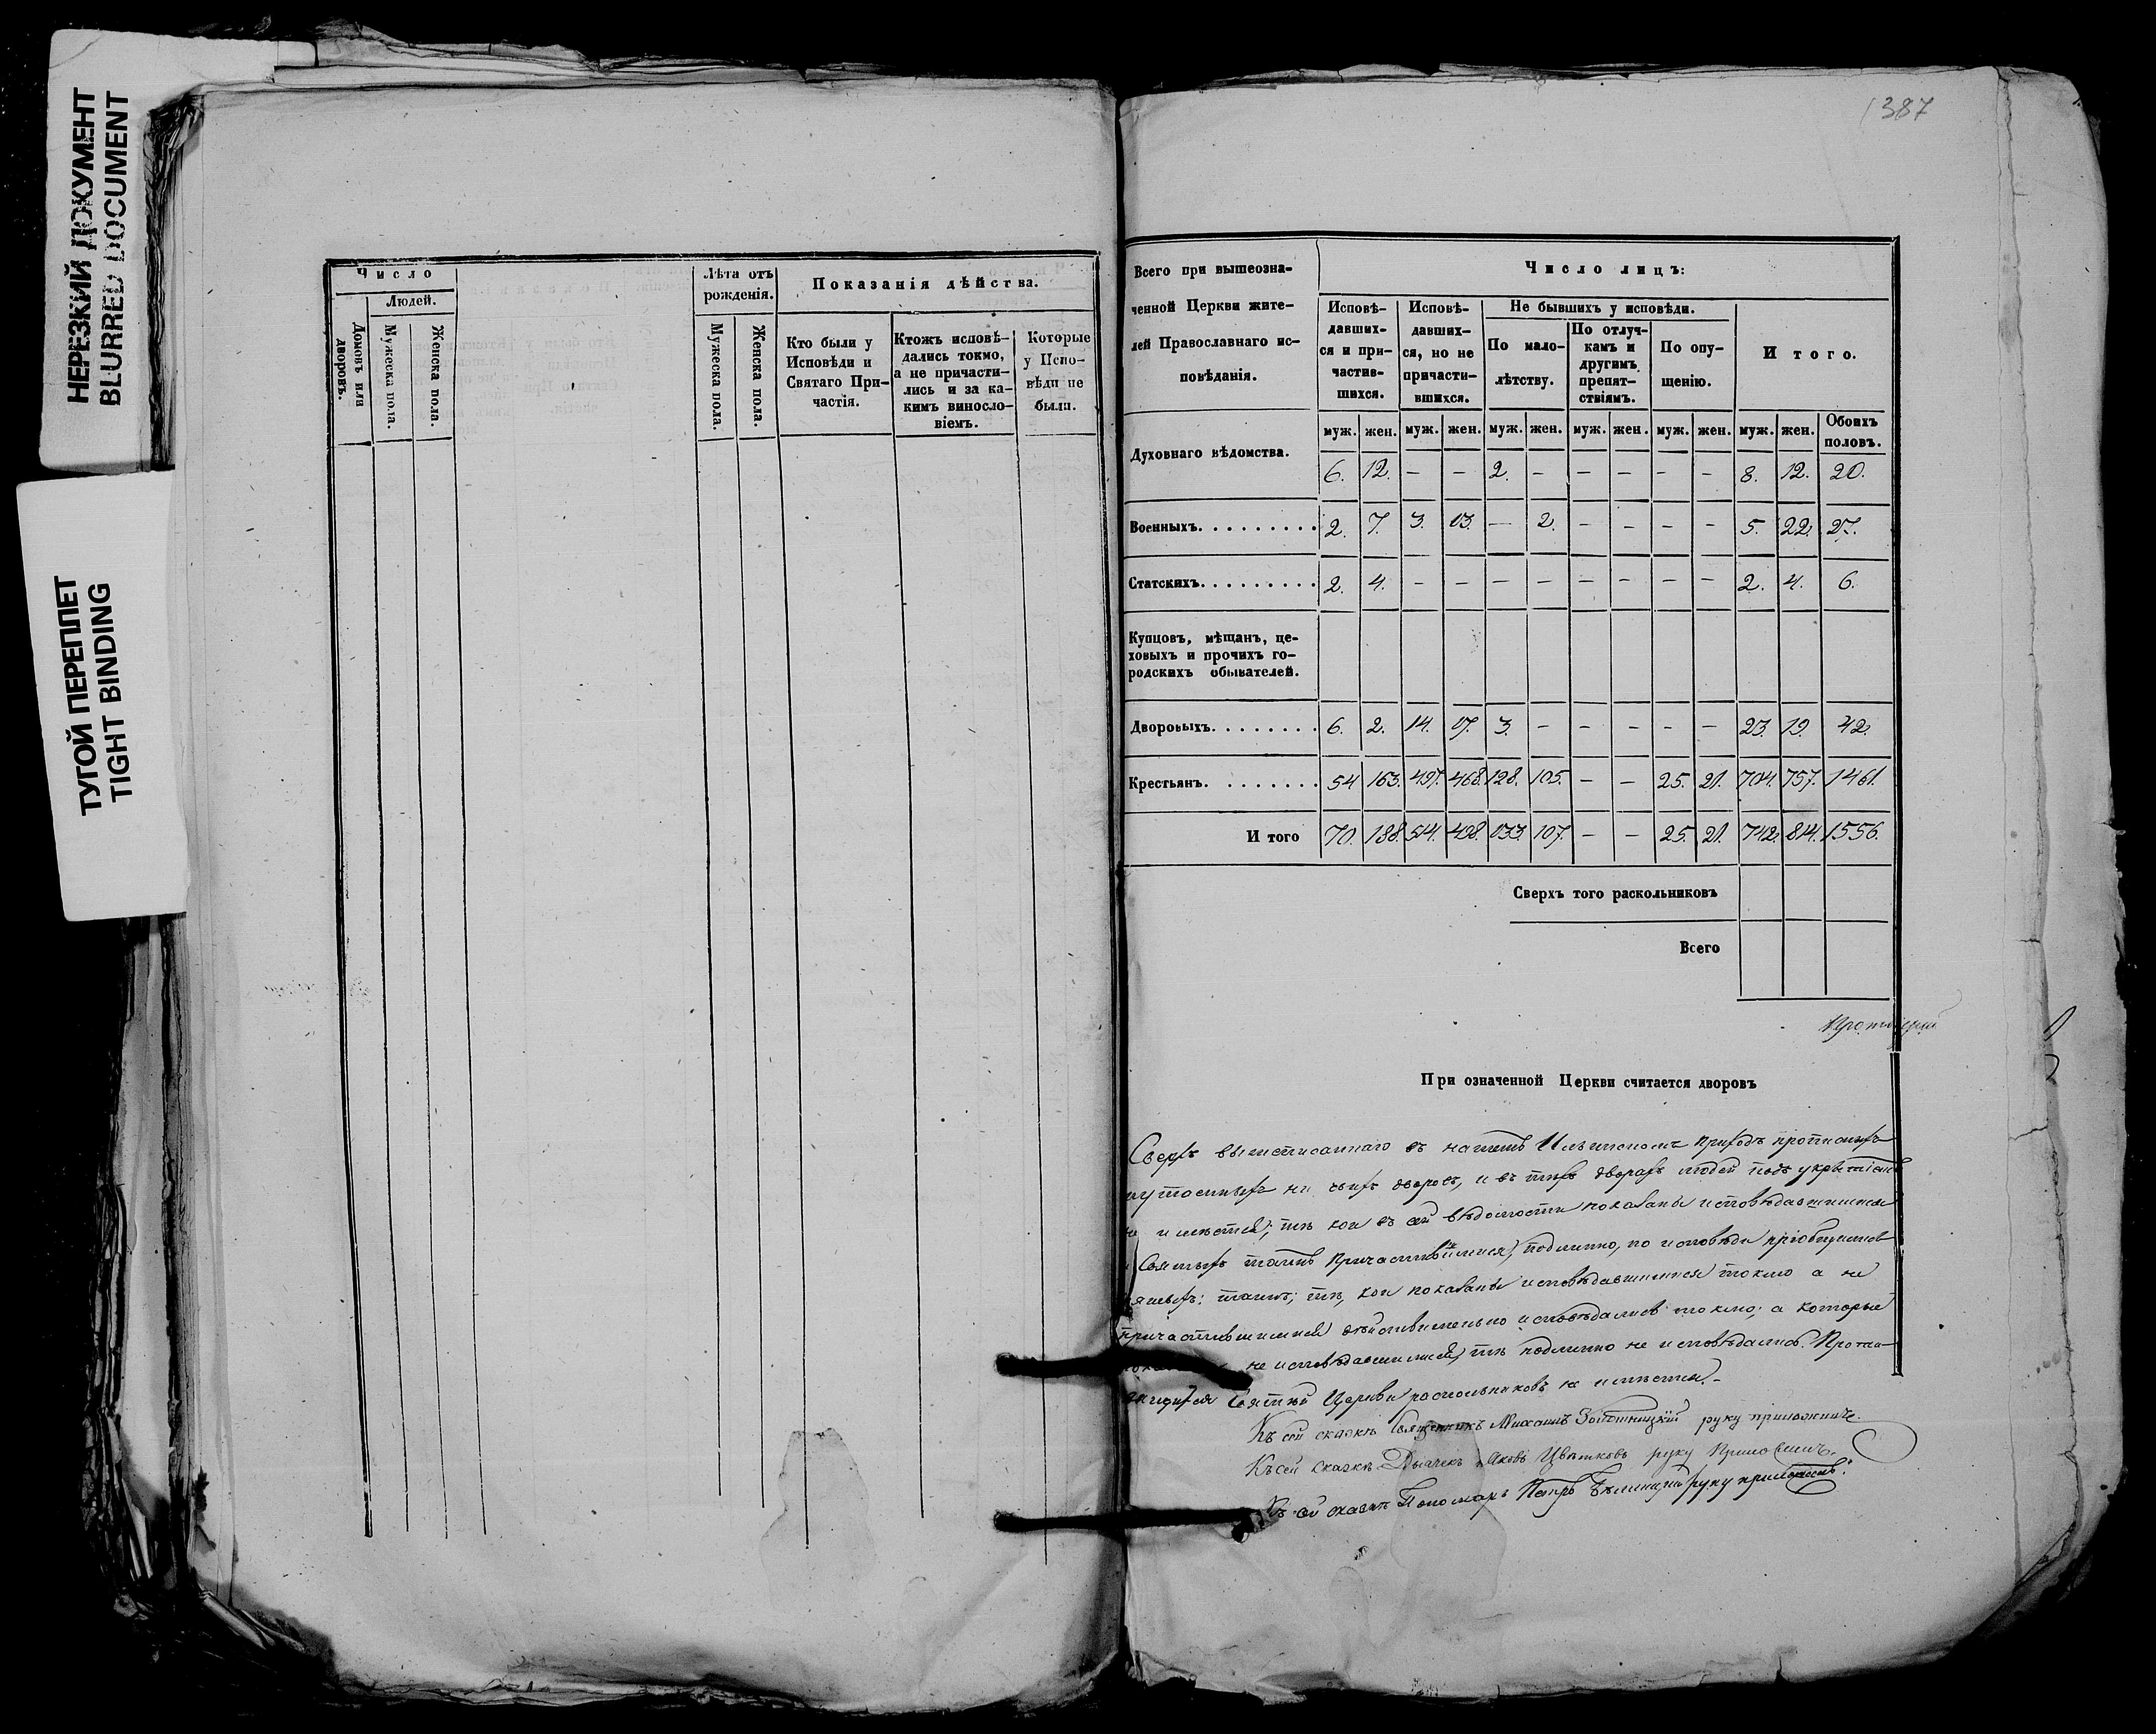 НЕРЕЗКИЙ ДОКУМЕНТ
BLURRED DOCUMENT
ТУГОЙ ПЕРЕПЛЕТ
TIGHT BINDING
Число
Людей.
Домовъ или дворовъ.
Мужеска пола.
Женска пола.
Лѣта отъ рожденія.
Мужеска пола.
Женска пола.
Показанія дѣйства.
Кто были у Исповѣди и Святаго При-частія.
Ктожъ исповѣ-дались токмо, а не причасти-лись и за ка-кимъ винослo-віемъ.
Которые у Испо-вѣди не были.
1387
Всего при вышеозна-
ченной Церкви жите-
лей Православнаго ис-
повѣданія.
Число лицъ:
Исповѣ-давших-ся и при-частив-шихся.
Исповѣ-давших-ся, но не причасти-вшихся.
Не бывшихъ у исповѣди.
По мало-лѣтству.
По отлуч-камъ и другимъ препят-ствіямъ.
По опу-щенію.
И того.
муж. жен. муж. жен. муж. жен. муж. жен. муж. жен. муж. жен. Обоихъ половъ.
Духовнаго вѣдомства. 6. 12. – – 2. – – – – – 8. 12. 20.
Военныхъ. 2. 7. 3. 13. – 2. – – – – 5. 22. 27.
Статскихъ. 2. 4. – – – – – – – – 2. 4. 6.
Купцовъ, мѣщанъ, це-
ховыхъ и прочихъ го-
родскихъ обывателей.
Дворовыхъ. 6. 2. 14. 17. 3. – – – – – 23. 19. 42.
Крестьянъ. 54 163. 497. 468. 128. 105. – – 25. 21. 704. 757. 1461.
И того 70. 188. 514. 498. 133. 107. – – 25. 21. 742. 814. 1556.
Сверхъ того раскольниковъ
Всего
Протоіерей
При означенной Церкви считается дворовъ
Сверхъ вышеписаннаго въ нашемъ Ильинскомъ приходѣ прописныхъ
ни чьихъ дворовъ, и въ тѣхъ дворахъ людей подъ укрытіемъ
имѣется; тѣ кои въ сей вѣдомости показаны исповѣдавшимися
Святыхъ таинъ Причастившимися, подлинно, по исповѣди пріобщились
таинъ; тѣ, кои показаны исповѣдавшимися токмо а не
причастившимися дѣйствительно исповѣдались токмо; а которые
не исповѣдавшимися, тѣ подлинно не исповѣдались. Протаи-
Святой Церкви раскольниковъ не имѣется.–
Къ сей сказкѣ Священникъ Михаилъ Золотницкій руку приложилъ.
Къ сей сказкѣ Дьячекъ Яковъ Цвѣтковъ руку приложилъ.
Къ сей сказкѣ Пономарь Петръ руку приложилъ.